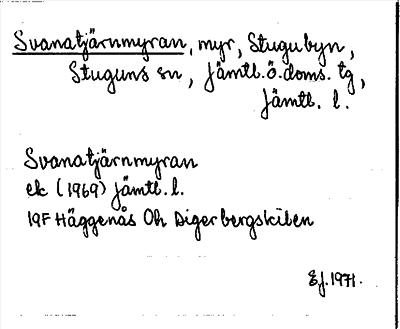 Svanatjärnmyran, myr, Stugubyn,
Stuguns sn, Jämtl.ö.doms.tg,
Jämtl. l.
Svanatjärnmyran
ek (1969) Jämtl.l.
19F Häggenås Oh Digerbergskilen
EJ.1971.